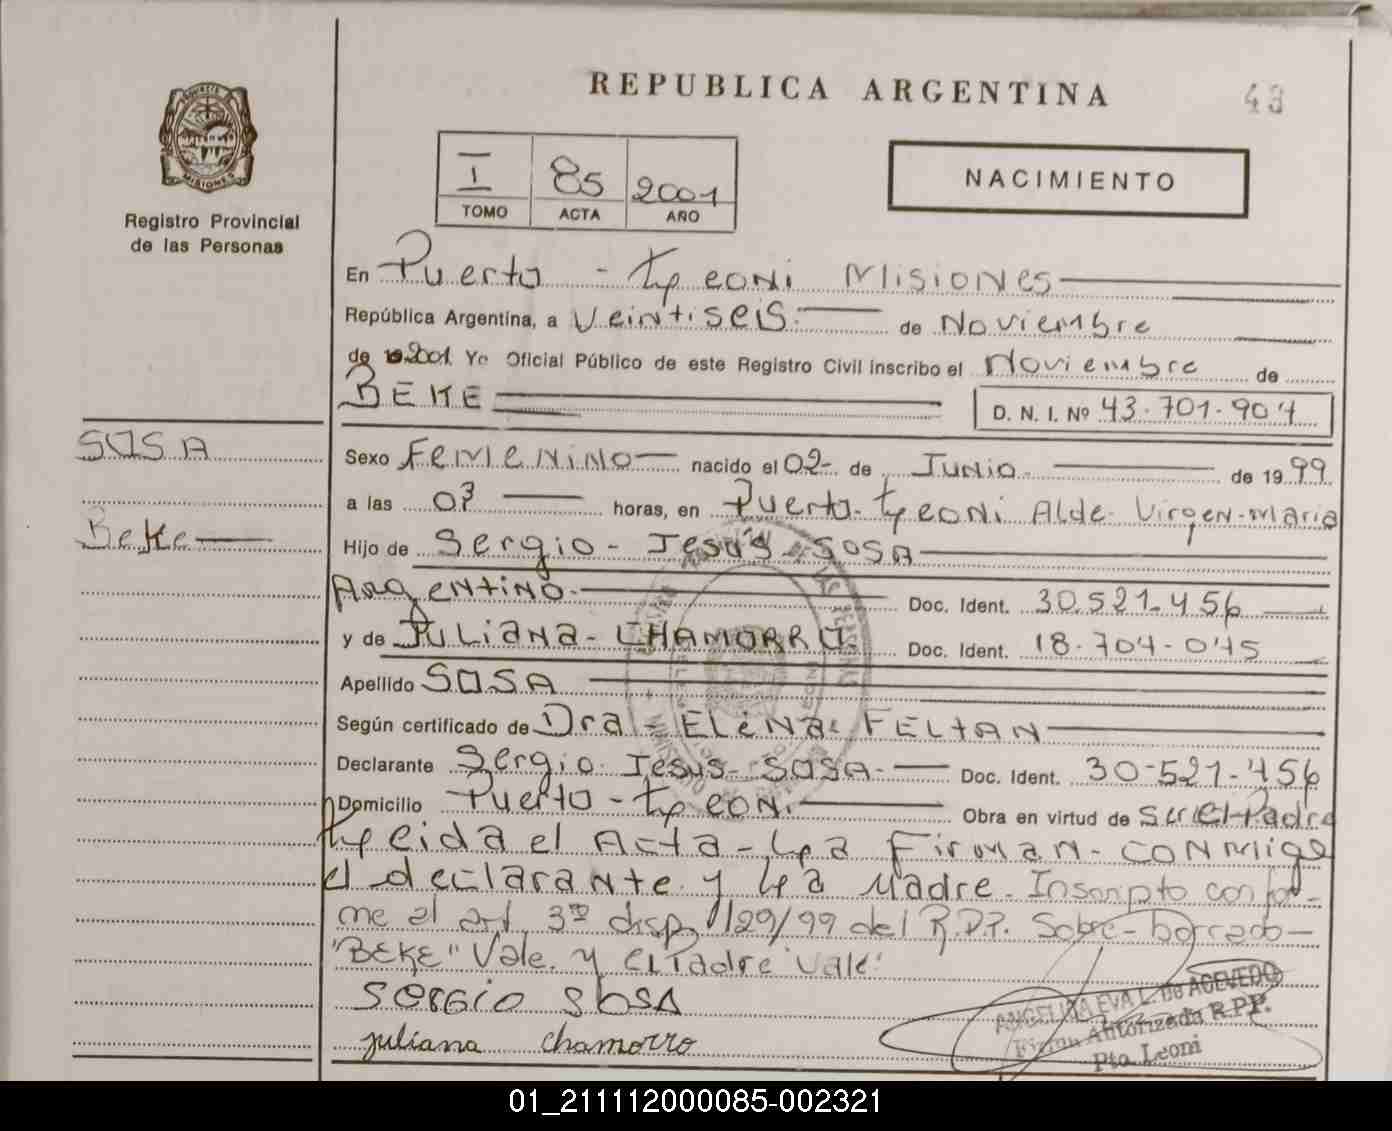 REPUBLICA ARGENTINA
43
PROVINCIA
MISIONES
Registro Provincial
de las Personas
I 85 2001
TOMO ACTA AÑO
NACIMIENTO
En Puerto - Leoni Misiones
República Argentina, a Veintiseis de Noviembre
de 2001 Yo Oficial Público de este Registro Civil inscribo el Noviembre de
BEKE D. N. I. Nº 43.701.907
SOSA
Beke
Sexo Femenino nacido el 02 de Junio de 1999
a las 03 horas, en Puerto Leoni Alde. Virgen-Maria
Hijo de Sergio - Jesús - SOSA
Argentino Doc. Ident. 30.521.456
y de JULIANA - CHAMORRO Doc. Ident. 18.704-045
Apellido SOSA
Según certificado de Dra - ELENA FELTAN
Declarante Sergio Jesus - SOSA - Doc. Ident. 30-521-456
Domicilio Puerto - Leoni Obra en virtud de Ser El Padre
Leida el Acta - La Firman - CONMIgo
el declarante y La Madre. Inscripto confor-
me al art. 3º disp. 129/99 del R.P.P. Sobre-borrado-
"BEKE" Vale. y "El Padre Vale"
Sergio SOSA
juliana chamorro
ANGELINA EVA L. De ACEVEDO
Firma Autorizada R.P.P.
Pto. Leoni
01_211112000085-002321